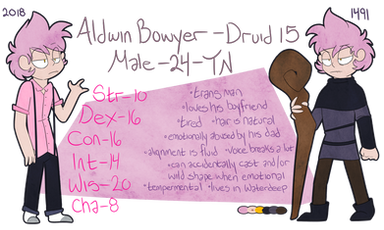 2018
1491
Aldwin Bowyer - Druid 15
Male - 24 - TN
Str-10
Dex-16
Con-16
Int-14
Wis-20
Cha-8
•trans man
•loves his boyfriend
•tired •hair is natural
•emotionally abused by his dad
•alignment is fluid •voice breaks a lot
•can accidentally cast and/or
wild shape when emotional
•tempermental •lives in Waterdeep